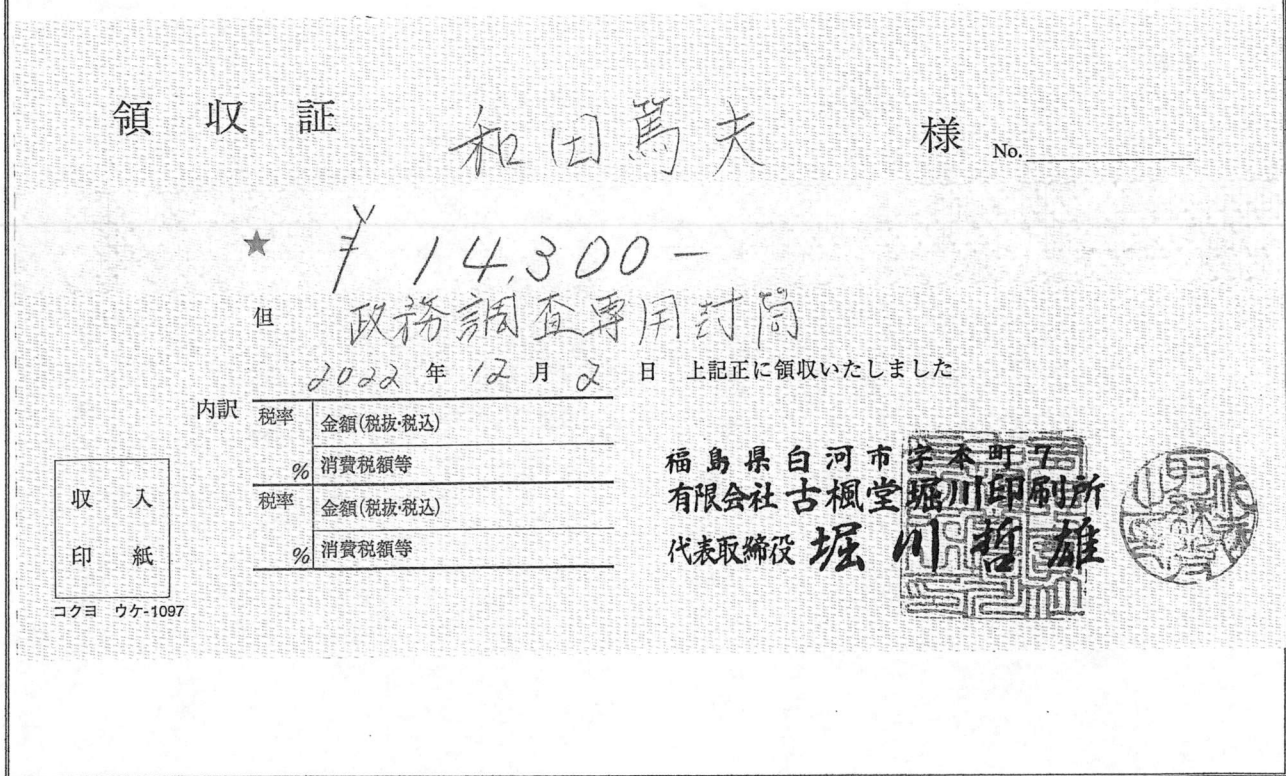 領収証 和田篤夫 様 No.
★ ¥14,300-
但 政務調査専用封筒
2022年12月2日 上記正に領収いたしました
内訳 税率 % 金額(税抜・税込)
消費税額等
税率 % 金額(税抜・税込)
消費税額等
収入
印紙
コクヨ ウケ-1097
福島県白河市字本町7
有限会社 古楓堂堀川印刷所
代表取締役 堀川哲雄